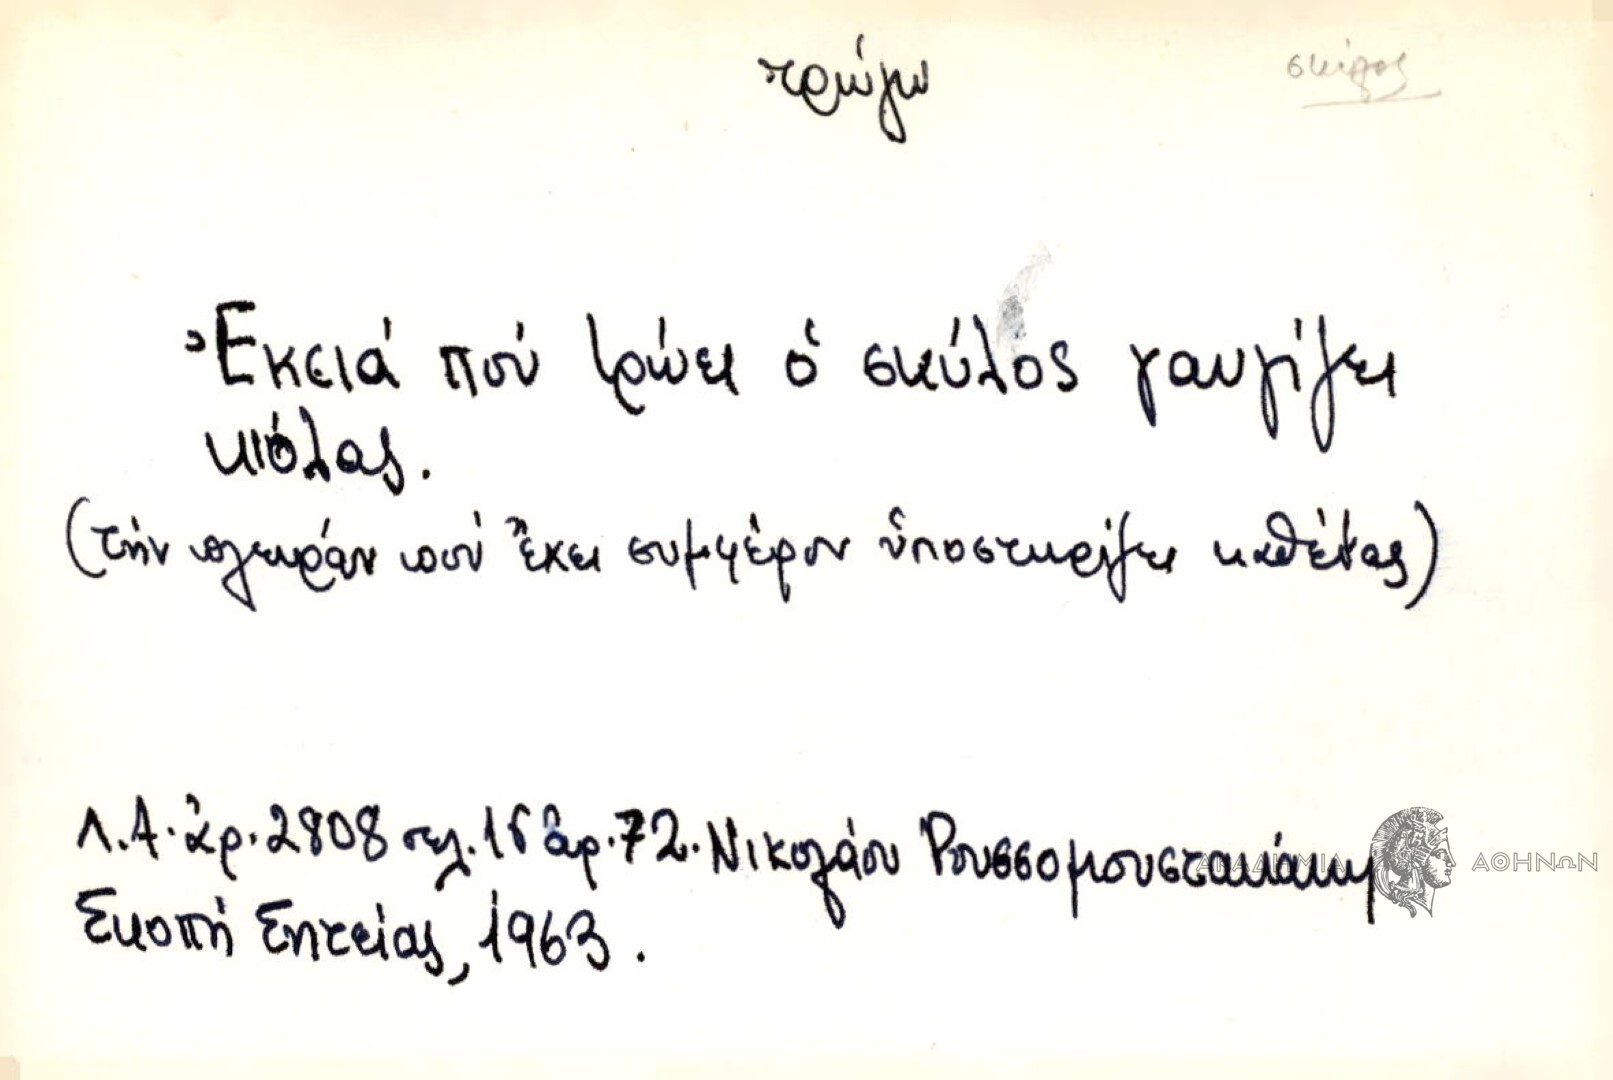 τρώγω
σκύλος
Ἐκειά πού τρώει ὁ σκύλος γαυγίζει
κιόλας.
(τήν πλευράν πού ἔχει συμφέρον ὑποστηρίζει καθένας)
Λ.Α. ἀρ. 2808 σελ. 15 ἀρ. 72. Νικολάου Ρουσσομουστακάκη
Σκοπή Σητείας, 1963.
ΑΚΑΔΗΜΙΑ ΑΘΗΝΩΝ